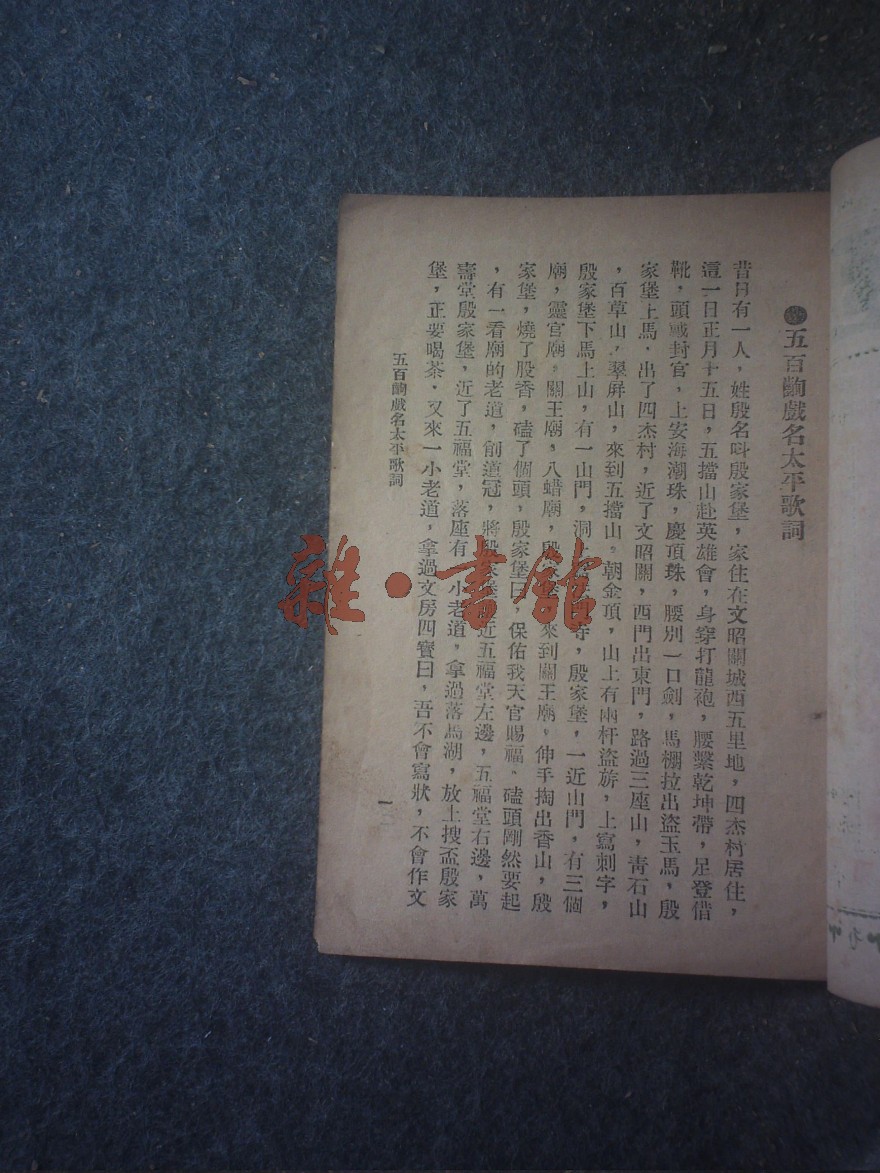 五百齣戲名太平歌詞
昔日有一人，姓殷名呌殷家堡，家住在文昭關城西五里地，四杰村居住，
這一日正月十五日，五擋山赴英雄會，身穿打龍袍，腰繫乾坤帶，足登借
靴，頭戴封官，上安海潮珠，慶頂珠，腰別一口劍，馬棚拉出盜玉馬，殷
家堡上馬，出了四杰村，近了文昭關，西門出東門，路過三座山，靑石山
，百草山，翠屏山，來到五擋山。朝金頂，山上有兩杆盜旂，上寫刺字，
殷家堡下馬上山，有一山門，洞寺，殷家堡，一近山門，有三個
廟，靈官廟，關王廟，八蜡廟，殷來到關王廟。伸手掏出香山，殷
家堡，燒了股香，磕了個頭，殷家堡曰，保佑我天官賜福。磕頭剛然要起
，有一看廟的老道，創道冠，將殷近五福堂左邊，五福堂右邊，萬
壽堂殷家堡，近了五福堂，落座有一小老道，拿過落馬湖，放上搜盃殷家
堡，正要喝茶，又來一小老道，拿過文房四寳曰，吾不會寫狀，不會作文
五百齣戲名太平歌詞
一
雜·書館